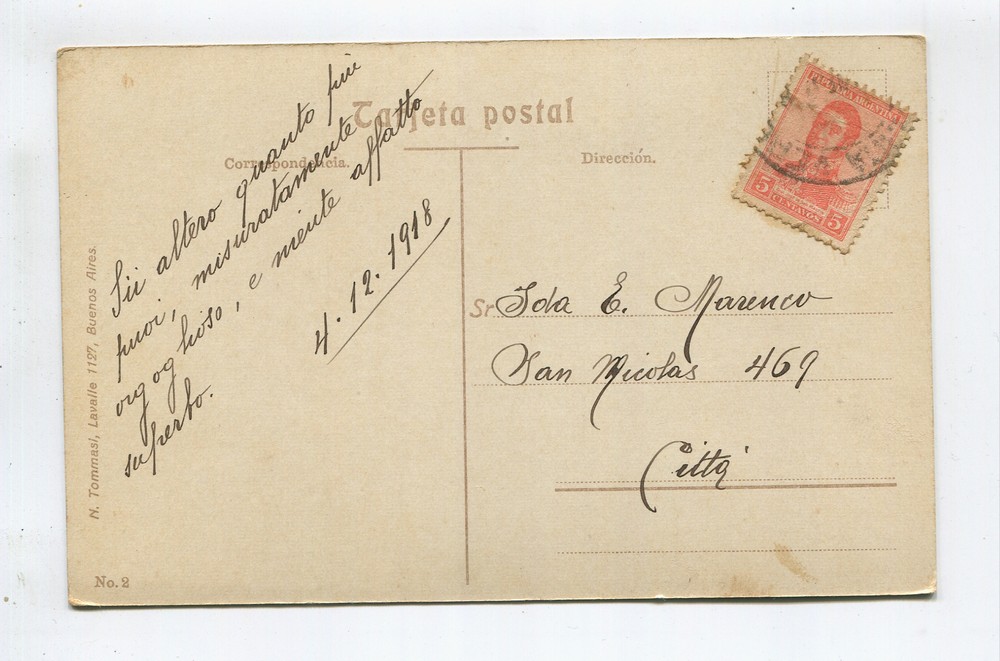 Tarjeta postal
Correspondencia.
Dirección.
Sii altero quanto piu
puoi, misuratamente
orgoglioso, e niente affatto
superbo.
4.12.1918
REPUBLICA ARGENTINA
5 CENTAVOS 5
Sr Ida E. Marenco
San Nicolas 469
Città
N. Tommasi, Lavalle 1127, Buenos Aires.
No. 2